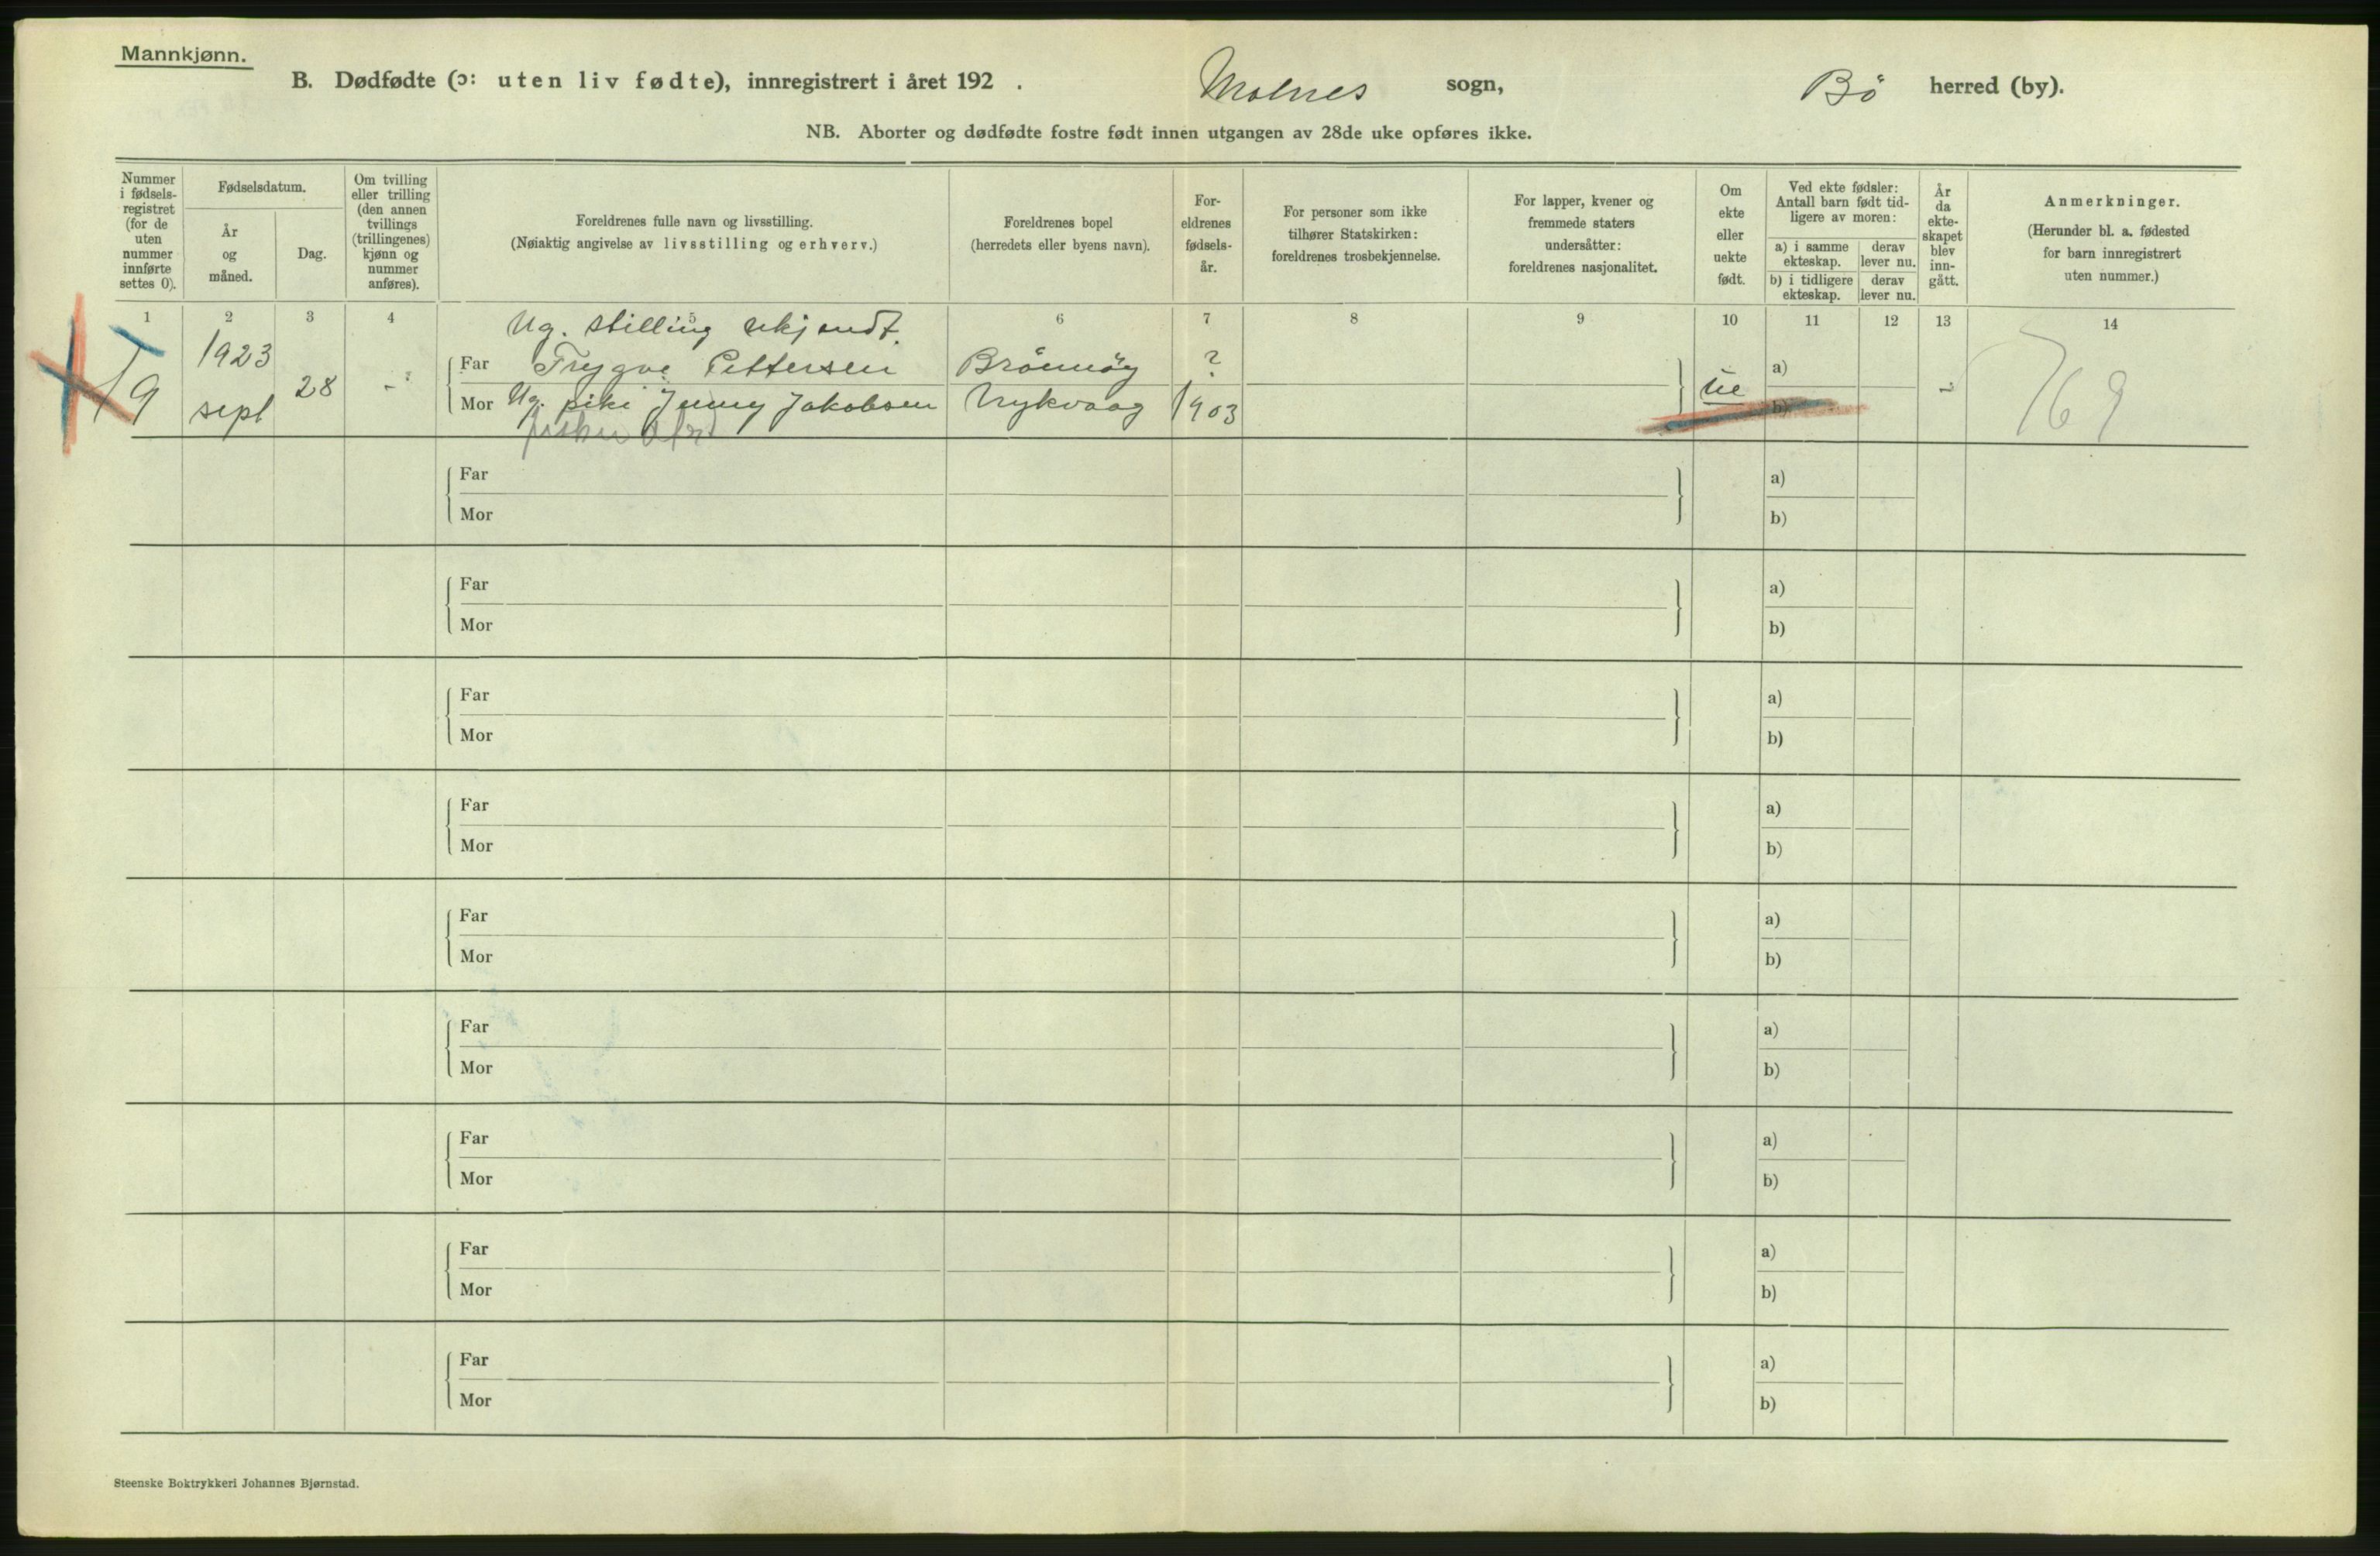 Mannkjønn.
B. Dødfødte (ɔ: uten liv fødte), innregistrert i året 192 . Malnes sogn, Bö herred (by).
NB. Aborter og dødfødte fostre født innen utgangen av 28de uke opføres ikke.
Nummer i fødsels-registret (for de uten nummer innførte settes 0).
Fødselsdatum.
År og måned.
Dag.
Om tvilling eller trilling (den annen tvillings (trillingenes) kjønn og nummer anføres).
Foreldrenes fulle navn og livsstilling.
(Nøiaktig angivelse av livsstilling og erhverv.)
Foreldrenes bopel
(herredets eller byens navn).
For-eldrenes fødsels-år.
For personer som ikke tilhører Statskirken: foreldrenes trosbekjennelse.
For lapper, kvener og fremmede staters undersåtter: foreldrenes nasjonalitet.
Om ekte eller uekte født.
Ved ekte fødsler: Antall barn født tid-ligere av moren:
a) i samme ekteskap.
derav lever nu.
b) i tidligere ekteskap.
derav lever nu.
År da ekte-skapet blev inn-gått.
Anmerkninger.
(Herunder bl. a. fødested for barn innregistrert uten nummer.)
1 2 3 4 5 6 7 8 9 10 11 12 13 14
Ug. stilling ukjendt.
1923
Far Trygve Pettersen Brönnöy ? a)
9 sept 28 - ue - 769
Mor Ug. pike Jenny Jakobsen Nykvaag 1903 b)
Far a)
Mor b)
Far a)
Mor b)
Far a)
Mor b)
Far a)
Mor b)
Far a)
Mor b)
Far a)
Mor b)
Far a)
Mor b)
Far a)
Mor b)
Far a)
Mor b)
Steenske Boktrykkeri Johannes Bjørnstad.